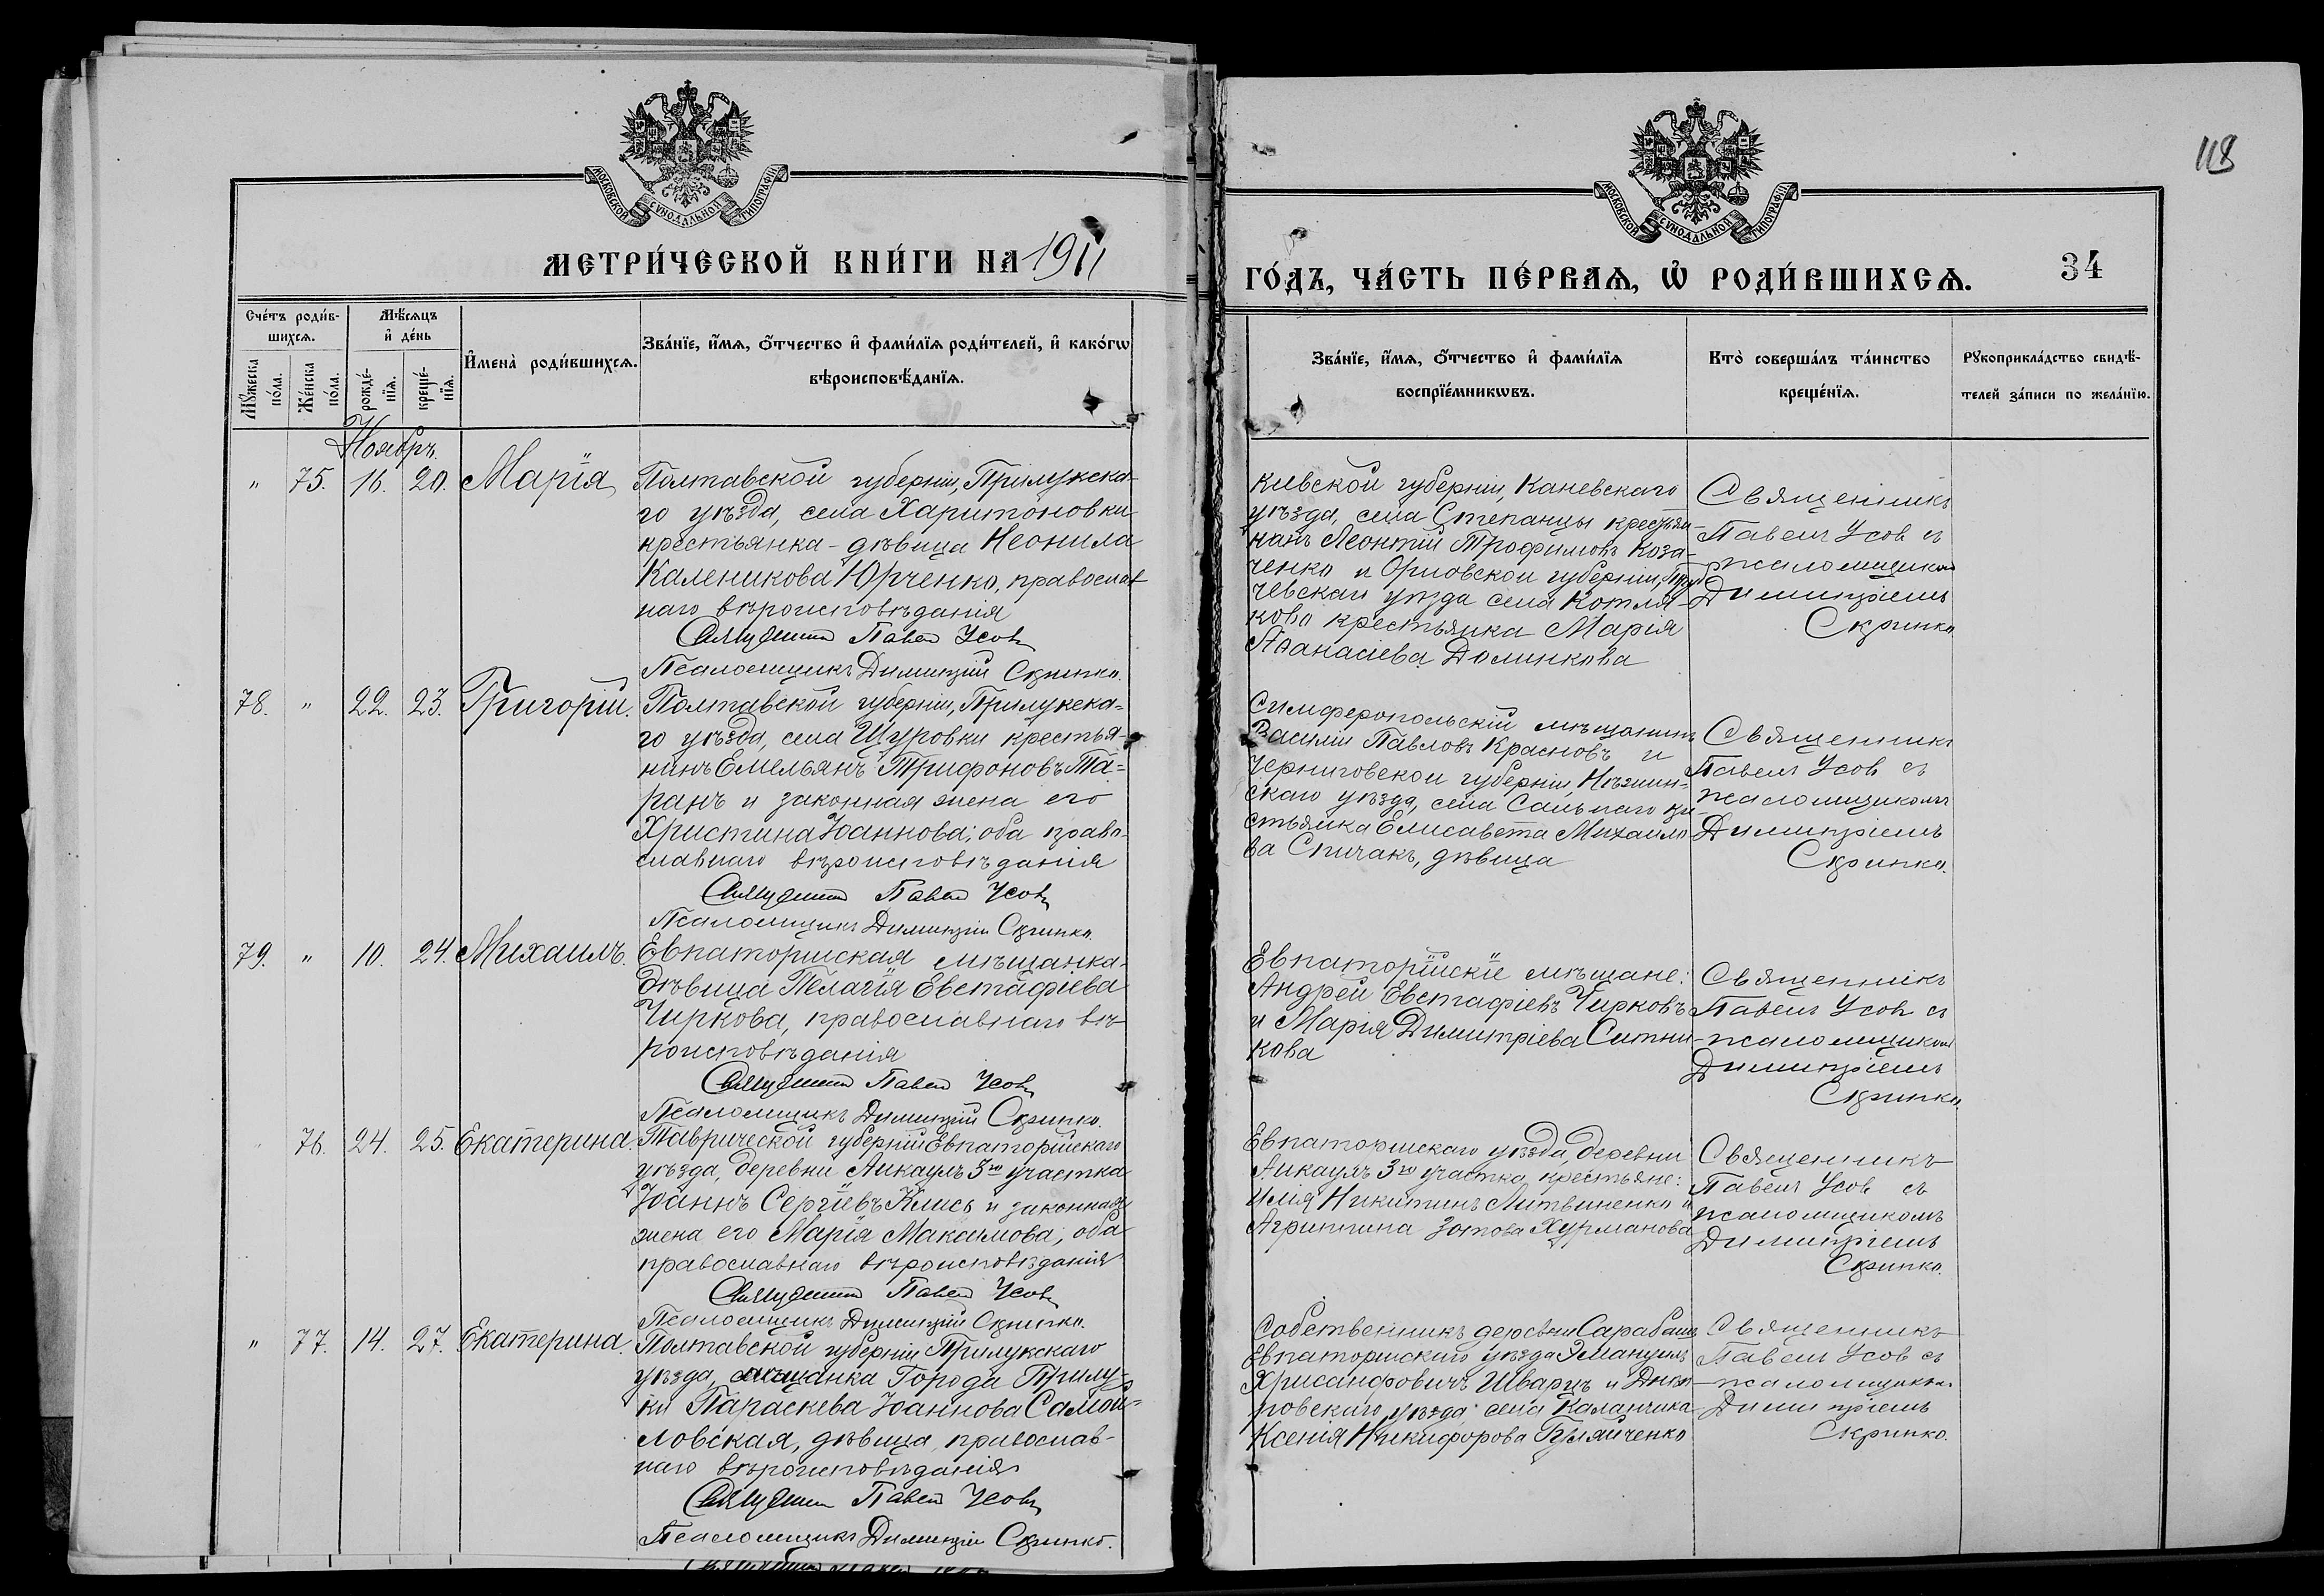 118
МОСКОВСКОЙ СѴНОДАЛЬНОЙ ТИПОГРАФІИ
МОСКОВСКОЙ СѴНОДАЛЬНОЙ ТИПОГРАФІИ
МЕТРИ́ЧЕСКОЙ КНИ́ГИ НА 1911
ГО́ДЪ, ЧА́СТЬ ПЕ́РВАѦ, Ѽ РОДИ́ВШИХСѦ. 34
Сче́тъ роди́в-
шихсѧ.
Мѣ́сѧцъ
и҆ де́нь
Мꙋ́жеска по́ла.
Же́нска по́ла.
рожде́-нїѧ.
креще́-нїѧ.
И҆мена̀ роди́вшихсѧ.
Зва́нїе, и҆́мѧ, ѻ҆́тчество и҆ фами́лїѧ роди́телей, и҆ како́гѡ
вѣроисповѣ́данїѧ.
Зва́нїе, и҆́мѧ, ѻ҆́тчество и҆ фами́лїѧ
воспрїе́мникѡвъ.
Кто̀ соверша́лъ та́инство
креще́нїѧ.
Рꙋкоприкла́дство свидѣ́-
телей за́писи по жела́нїю.
Ноябрь.
" 75. 16. 20. Марія
Полтавской губерніи, Прилукска-
го уѣзда, села Харитоновки
крестьянка - дѣвица Неонила
Каленикова Юрченко, православ
наго вѣроисповѣданія
Священникъ Павелъ Усовъ
Псаломщикъ Димитрій Скрипко.
Кіевской губерніи, Каневскаго
уѣзда, села Степанцы крестья-
нинъ Леонтій Трофимовъ Коза-
ченко и Орловской губерніи, Труб
чевскаго уѣзда села Котля-
кова крестьянка Марія
Аѳанасіева Долинкова
Священникъ
Павелъ Усовъ съ
псаломщикомъ
Димитріемъ
Скрипко.
78. " 22. 23. Григорій.
Полтавской губерніи, Прилукска-
го уѣзда, села Щуровки крестья-
нинъ Емельянъ Трифоновъ Та-
ранъ и законная жена его
Христина Іоаннова; оба право-
славнаго вѣроисповѣданія
Священникъ Павелъ Усовъ
Псаломщикъ Димитрій Скрипко.
Симферопольскій мѣщанинъ
Василій Павловъ Красновъ и
Черниговской губерніи, Нѣжин-
скаго уѣзда, села Сальнаго кре
стьянка Елисавета Михаило
ва Спичакъ, дѣвица
Священникъ
Павелъ Усовъ съ
псаломщикомъ
Димитріемъ
Скрипко.
79. " 10. 24. Михаилъ.
Евпаторійская мѣщанка-
дѣвица Пелагія Евстафіева
Чиркова, православнаго вѣ-
роисповѣданія
Священникъ Павелъ Усовъ
Псаломщикъ Димитрій Скрипко.
Евпаторійскіе мѣщане:
Андрей Евстафіевъ Чирковъ
и Марія Димитріева Ситни
кова
Священникъ
Павелъ Усовъ съ
псаломщикомъ
Димитріемъ
Скрипко.
" 76. 24. 25. Екатерина.
Таврической губерніи Евпаторійскаго
уѣзда, деревни Аикаулъ 3го участка
Іоаннъ Сергіевъ Клисъ и законная
жена его Марія Максимова; оба
православнаго вѣроисповѣданія
Священникъ Павелъ Усовъ
Псаломщикъ Димитрій Скрипко.
Евпаторійскаго уѣзда, деревни
Аикаулъ 3го участка крестьяне:
Илія Никитинъ Литвиненко и
Агриппина Зотова Хурманова
Священникъ
Павелъ Усовъ съ
псаломщикомъ
Димитріемъ
Скрипко.
" 77. 14. 27. Екатерина.
Полтавской губерніи Прилукскаго
уѣзда, мѣщанка города Прилу-
ки Параскева Іоаннова Самой-
ловская, дѣвица, православ-
наго вѣроисповѣданія
Священникъ Павелъ Усовъ
Псаломщикъ Димитрій Скрипко.
Собственникъ деревни Сарабашъ
Евпаторійскаго уѣзда Эмануилъ
Хрисанфовичъ Шварцъ и Днѣп
ровскаго уѣзда села Каланчака
Ксенія Никифорова
Священникъ
Павелъ Усовъ съ
псаломщикомъ
Димитріемъ
Скрипко.